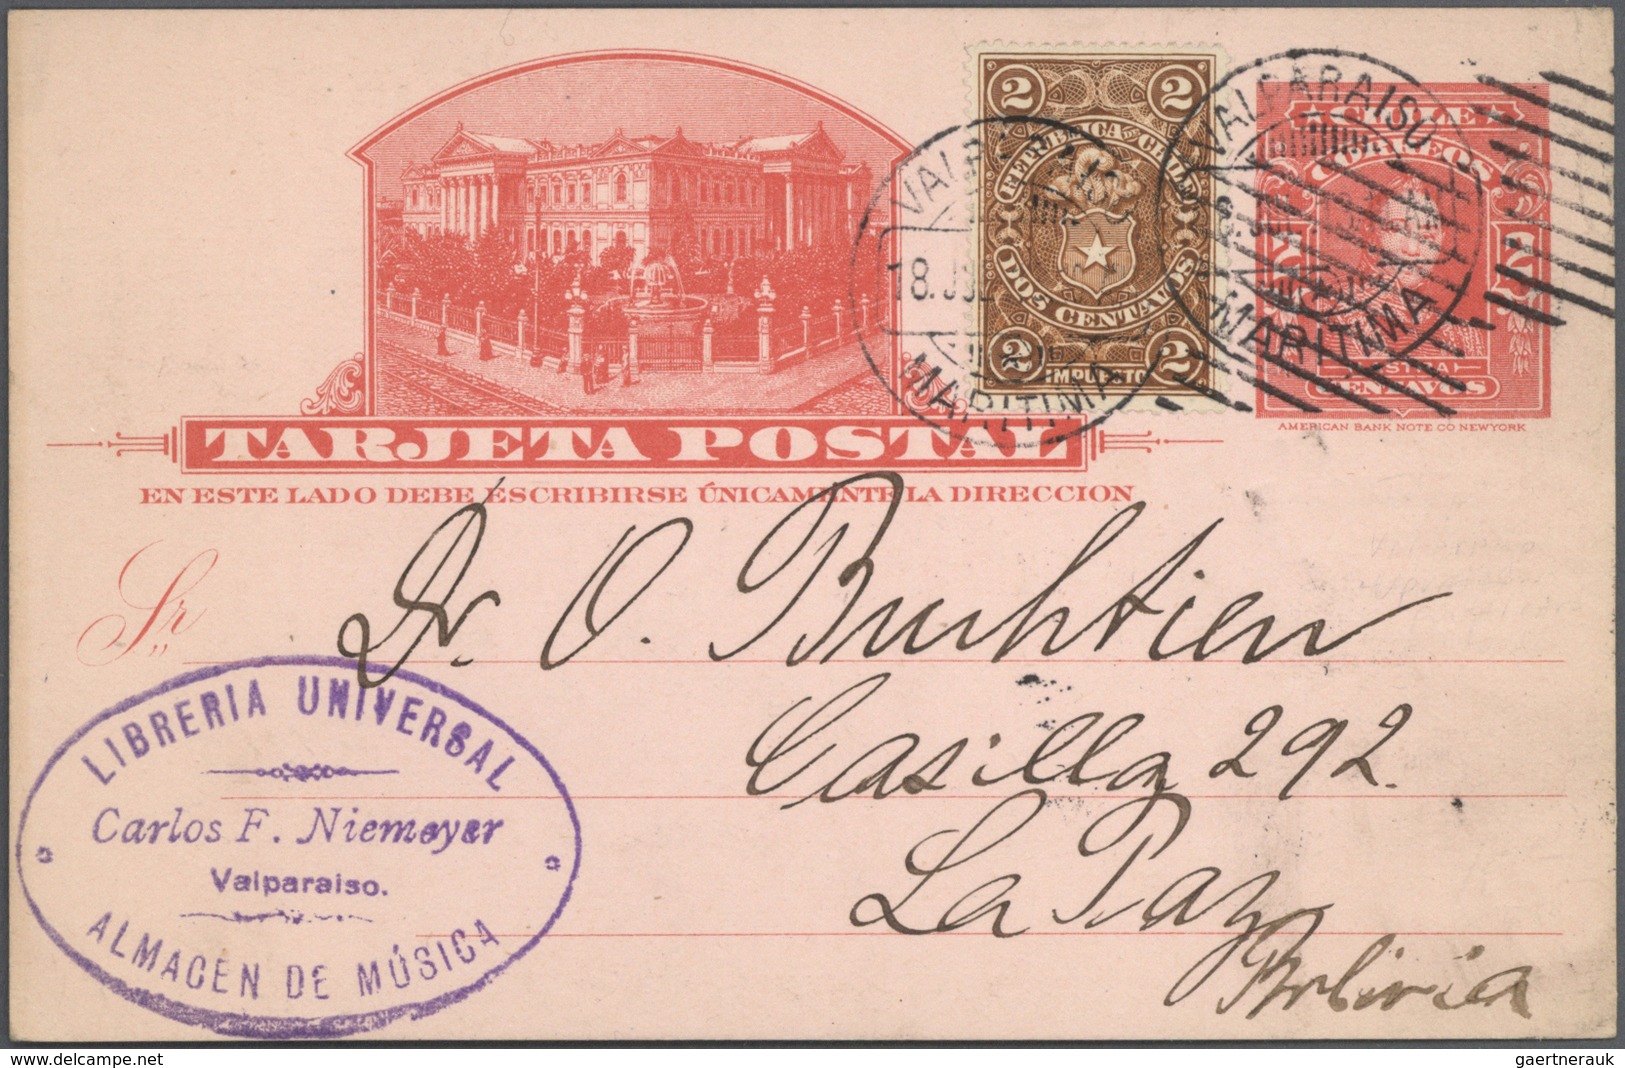 TARJETA POSTAL
EN ESTE LADO DEBE ESCRIBIRSE ÚNICAMENTE LA DIRECCION
2 2
REPUBLICA DE CHILE
DOS CENTAVOS
2 2
IMPUESTO
CHILE
CORREOS
2 2
CENTAVOS
AMERICAN BANK NOTE CO NEW YORK
VALPARAISO
18.JUL
MARITIMA
VALPARAISO
MARITIMA
Sr
Dr. O. Buchtien
Casilla 292.
La Paz
Bolivia
LIBRERIA UNIVERSAL
Carlos F. Niemeyer
Valparaiso.
ALMACEN DE MÚSICA
gaertnerauk @ delcampe.net